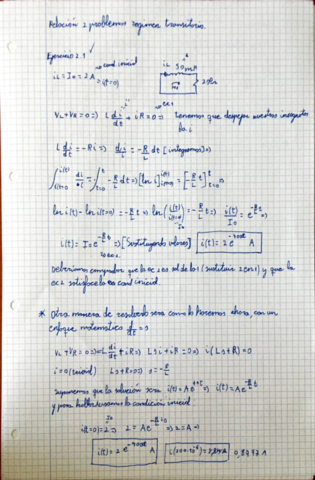 Relación 2 problemas regimen transitorio.
Ejercicio 2.1 ✓
iL = I₀ = 2A → cond inicial (t=0)
iL 50mH
20Ω
VL + VR = 0 ⇒ L di/dt + iR = 0 ⇒ Tenemos que despejar nuestra incognita
la i
L di/dt = -Ri ⇒ di/i = -R/L dt [integramos] ⇒
∫ di/i = ∫ -R/L dt ⇒ [ln i] = [-R/L t] ⇒
ln i(t) - ln i(t=0) = -R/L t ⇒ ln (i(t)/I₀) = -R/L t ⇒ i(t)/I₀ = e^(-R/L t) ⇒
i(t) = I₀ e^(-R/L t) ⇒ [Sustituyendo valores] i(t) = 2e^(-400t) A
ec 2
Deberiamos comprobar que la ec 2 es sol de la 1 (sustituir 2 en 1) y que la
ec 2 satisface la cond inicial.
* Otra manera de resolverlo sera como lo hacemos ahora, con un
enfoque matematico d/dt = s
VL + VR = 0 ⇒ L di/dt + iR ⇒ Lsi + iR = 0 ⇒ i(Ls+R) = 0
i = 0 (trivial) Ls + R = 0 ⇒ s = -R/L
Suponemos que la solución sera i(t) = Ae^(st) ⇒ i(t) = Ae^(-R/L t)
y para hallar A usamos la condición inicial
i(t=0) = 2 ⇒ 2 = Ae^(-R/L 0) ⇒ 2 = A ⇒
i(t) = 2e^(-400t) A
0,8987A